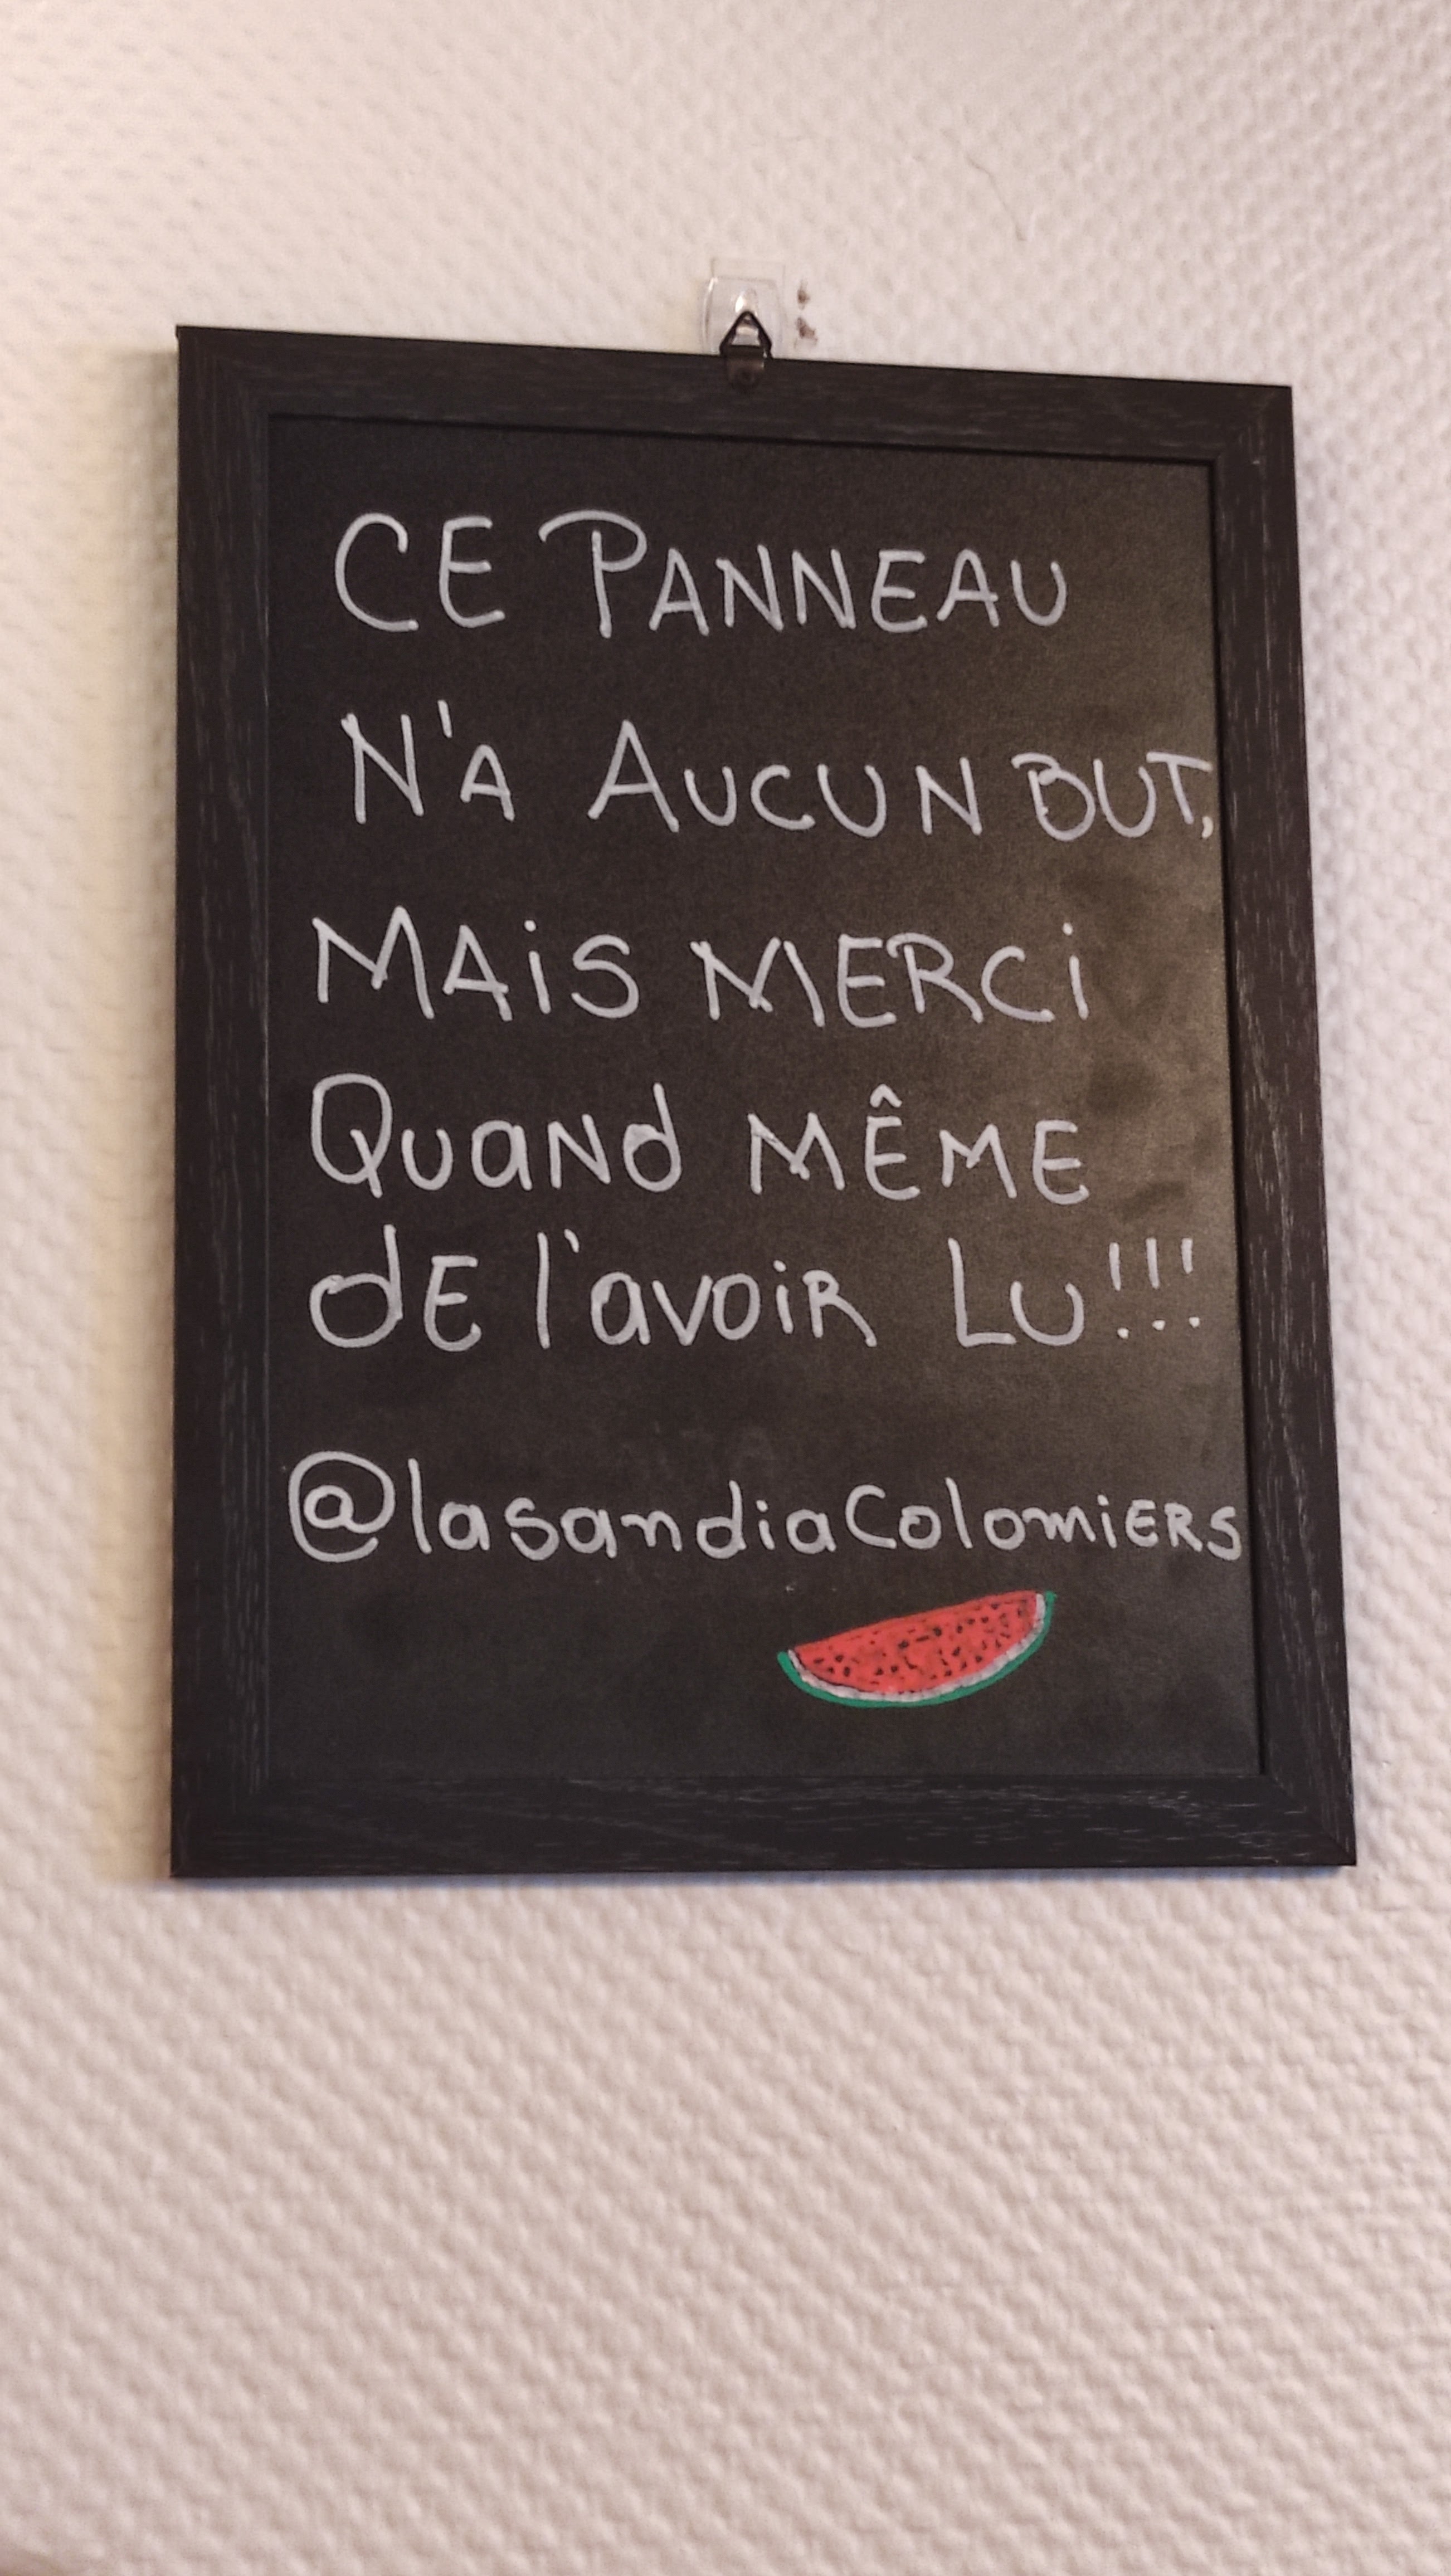 CE PANNEAU
N'A AUCUN BUT,
MAiS MERCi
QuaNd MÊME
dE l'avoiR LU!!!
@lasandiaColomiERS